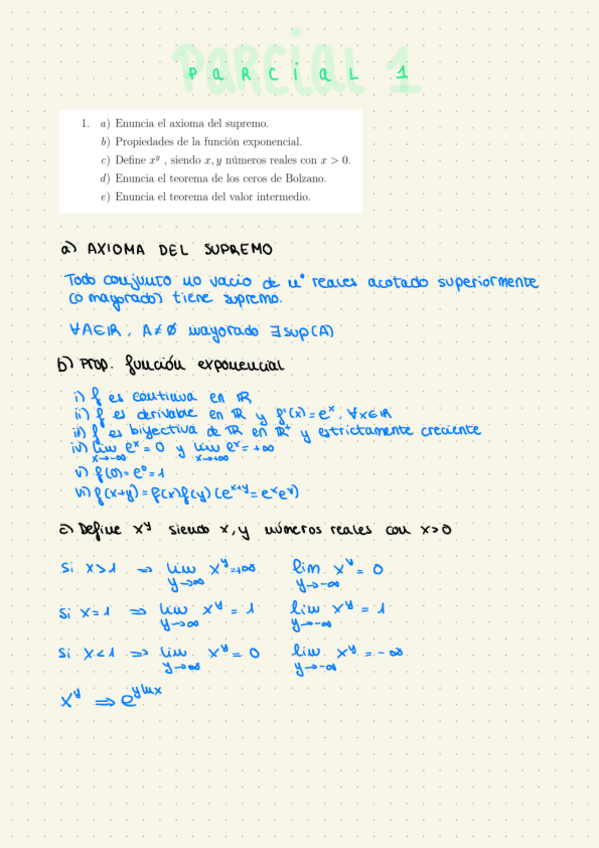 PARCIAL 1
1. a) Enuncia el axioma del supremo.
b) Propiedades de la función exponencial.
c) Define x^y , siendo x, y números reales con x > 0.
d) Enuncia el teorema de los ceros de Bolzano.
e) Enuncia el teorema del valor intermedio.
a) AXIOMA DEL SUPREMO
Todo conjunto no vacio de nº reales acotado superiormente
(o mayorado) tiene supremo.
∀A∈ℝ, A≠∅ mayorado ∃sup(A)
b) Prop. función exponencial
i) f es continua en ℝ
ii) f es derivable en ℝ y f'(x)=e^x, ∀x∈ℝ
iii) f es biyectiva de ℝ en ℝ⁺ y estrictamente creciente
iv) lim e^x = 0 y lim e^x = +∞
x→-∞ x→+∞
v) f(0)=e^0=1
vi) f(x+y)=f(x)f(y) (e^{x+y}=e^x e^y)
c) Define x^y siendo x,y números reales con x>0
Si x>1 ⇒ lim x^y=+∞ lim x^y = 0
y→∞ y→-∞
Si x=1 ⇒ lim x^y = 1 lim x^y = 1
y→∞ y→-∞
Si x<1 ⇒ lim x^y = 0 lim x^y = -∞
y→∞ y→-∞
x^y ⇒ e^{y ln x}